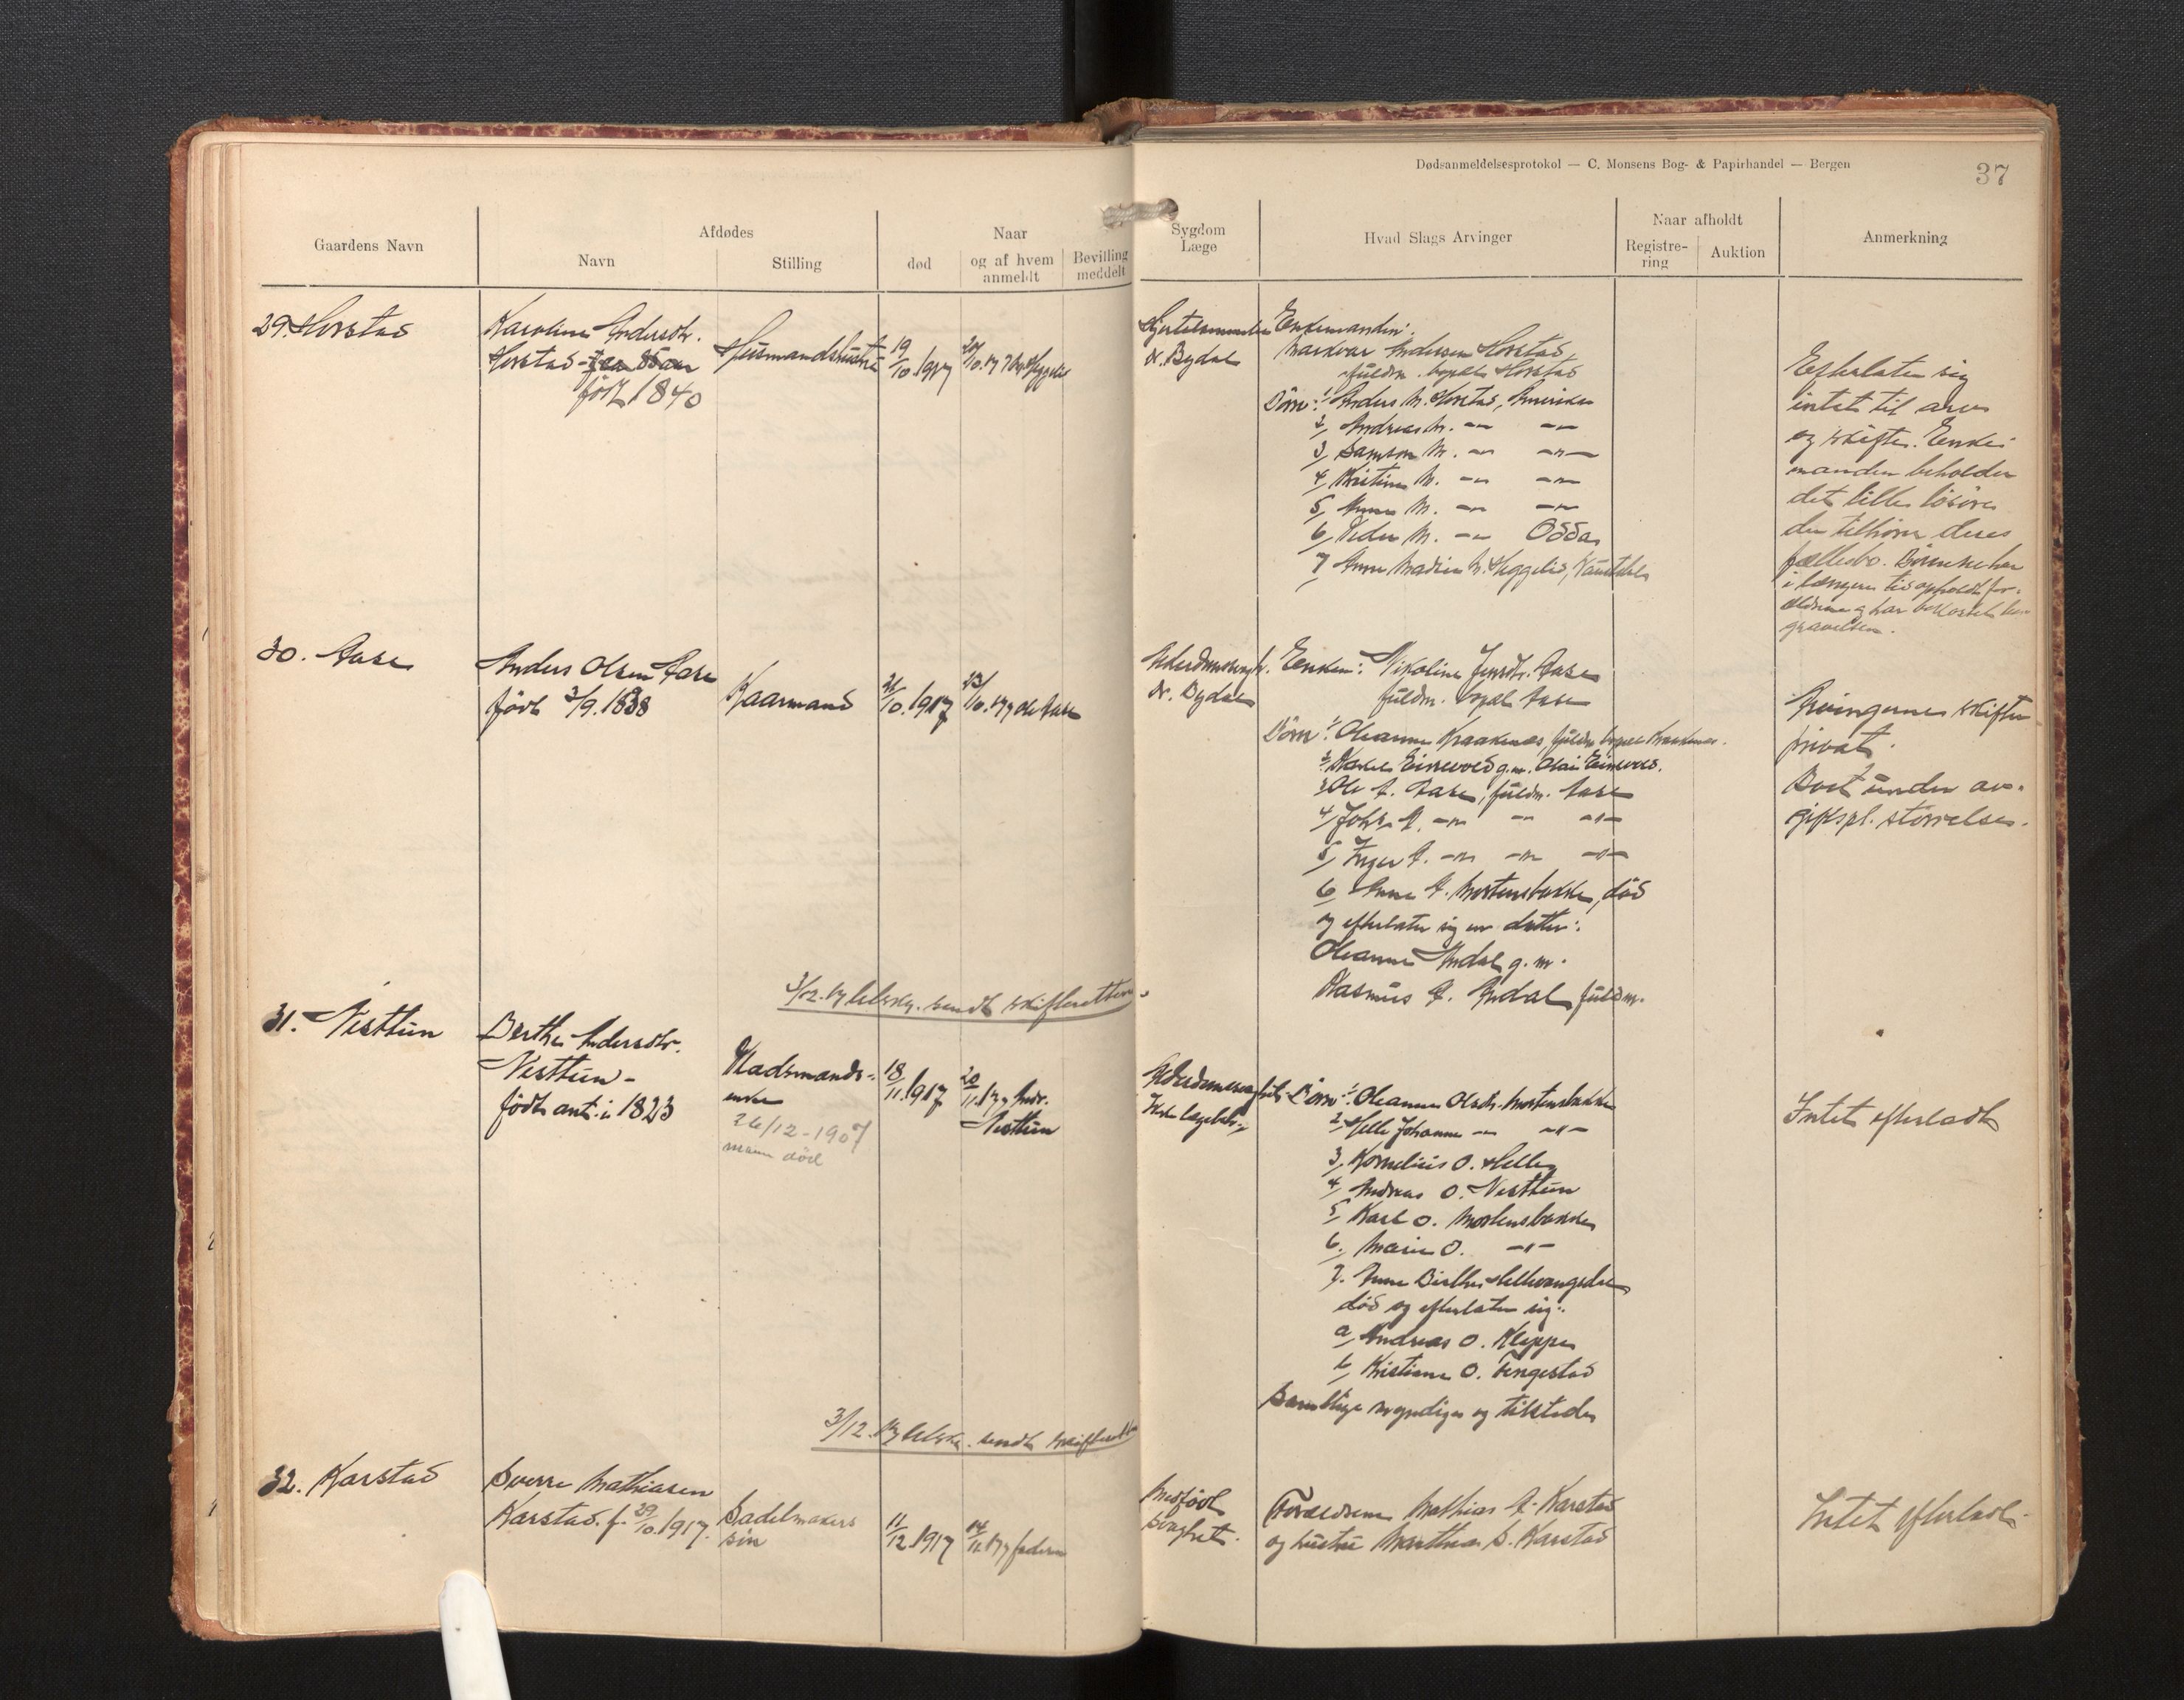 Dødsanmeldelsesprotokol — C. Monsens Bog- & Papirhandel — Bergen
37
Gaardens Navn
Afdødes
Navn
Stilling
Naar
død
og af hvem
anmeldt
Bevilling
meddelt
Sygdom
Læge
Hvad Slags Arvinger
Naar afholdt
Registre-
ring
Auktion
Anmerkning
29. Horstad
Karoline Andersdtr.
Horstad
født 1840
Husmandshustru
19/10.1917
dr. Bydal
Enkemanden:
Andersen Horstad
fuldm. bopæl Horstad
Børn: 1, Anders M. Horstad, Amerika
2, Andreas M. -"- -"-
3, Samson M. -"- -"-
4, Kristine M. -"- -"-
5, Anna M. -"- -"-
6, Peder M. -"- Odda
7, Anne M. Heggelid,
Efterlater sig
intet til arv
og skifte. Enke-
manden beholder
det lille løsøre
der tilhører deres
fællesbo. Børnene har
i længere tid opholdt for-
ældrene og har bekostet be-
gravelsen.
30. Aase
Anders Olsen Aase
født 3/9.1838
Kaarmand
21/10.1917
23/10.17 Ole Aase
Alderdomssvagh.
dr. Bydal
Enken: Nikoline Jensdtr. Aase
fuldm. bopæl Aase
Børn: 1, Oleanna Kraakenes, fuldm bopæl Kraakenes.
2, Eimevold g.m. Olai Eimevold.
3, Ole A. Aase, fuldm. Aase
4, Johan A. -"- -"- -"-
5, Inger A. -"- -"- -"-
6, Anne A. Mortensbakke, død
og efterlater sig en datter:
Oleanna Indal g.m.
Rasmus A. Indal fuldm.
Arvingerne skifter
privat.
Boet under av-
giftspl. størrelse.
3/12.17 sendt skifteretten.
31. Nesttun
Berthe Andersdtr.
Nesttun -
født ant. i 1823
Pladsmands-
enke
26/12-1907
mann død
18/11.1917
20/11.17 Andr.
Nesttun
Alderdomssvaghet
Ikke lægebeh.
Børn: 1, Oleanna Olsdtr. Mortensbakke
2, Johanne -"- -"-
3, Kornelius O. Helle
4, Andreas O. Nesttun
5, Karl O. Mortensbakke
6, Marie O. -"-
7. Anne Berthe
død og efterlater sig:
a, Andreas O. Kleppe
b, Kristiane O. Tengestad
Samtlige myndige og tilstede
Intet efterladt
3/12.17 sendt skifteretten
32. Karstad
Sverre Mathiasen
Karstad. f. 29/10.1917.
Sadelmakers
søn
11/12.1917
14/12.17 faderen
Medfødt
svaghet.
Forældrene Mathias A. Karstad
og hustru Marthea S. Karstad
Intet efterladt.